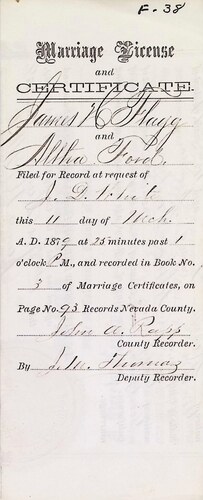 F-38
Marriage License
and
CERTIFICATE.
James H Flagg
and
Altha Ford
Filed for Record at request of
J. D. White
this 11 day of Mch.
A. D. 1879 at 25 minutes past 1
o'clock P M., and recorded in Book No.
3 of Marriage Certificates, on
Page No. 93 Records Nevada County.
John A. Rapp
County Recorder.
By J. W. Thomas
Deputy Recorder.